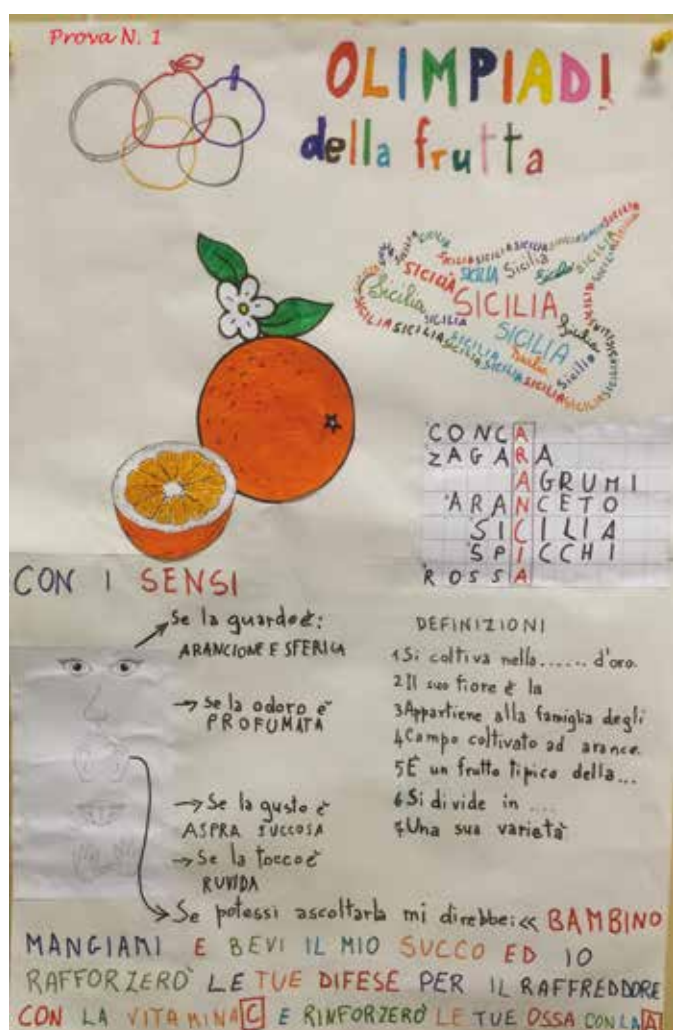 Prova N. 1
OLIMPIADI
della frutta
SICILIA SICILIA Sicilia
SICILIA
Sicilia SICILIA
SICILIA
CONCA
ZAGARA
AGRUMI
ARANCETO
SICILIA
SPICCHI
ROSSA
CON I SENSI
Se la guardo è:
ARANCIONE E SFERICA
Se la odoro è
PROFUMATA
Se la gusto è
ASPRA SUCCOSA
Se la tocco è
RUVIDA
DEFINIZIONI
1 Si coltiva nella...... d'oro.
2 Il suo fiore è la
3 Appartiene alla famiglia degli
4 Campo coltivato ad arance.
5 È un frutto tipico della...
6 Si divide in ....
7 Una sua varietà
Se potessi ascoltarla mi direbbe: << BAMBINO
MANGIAMI E BEVI IL MIO SUCCO ED IO
RAFFORZERÒ LE TUE DIFESE PER IL RAFFREDDORE
CON LA VITAMINA C E RINFORZERÒ LE TUE OSSA CON LA A